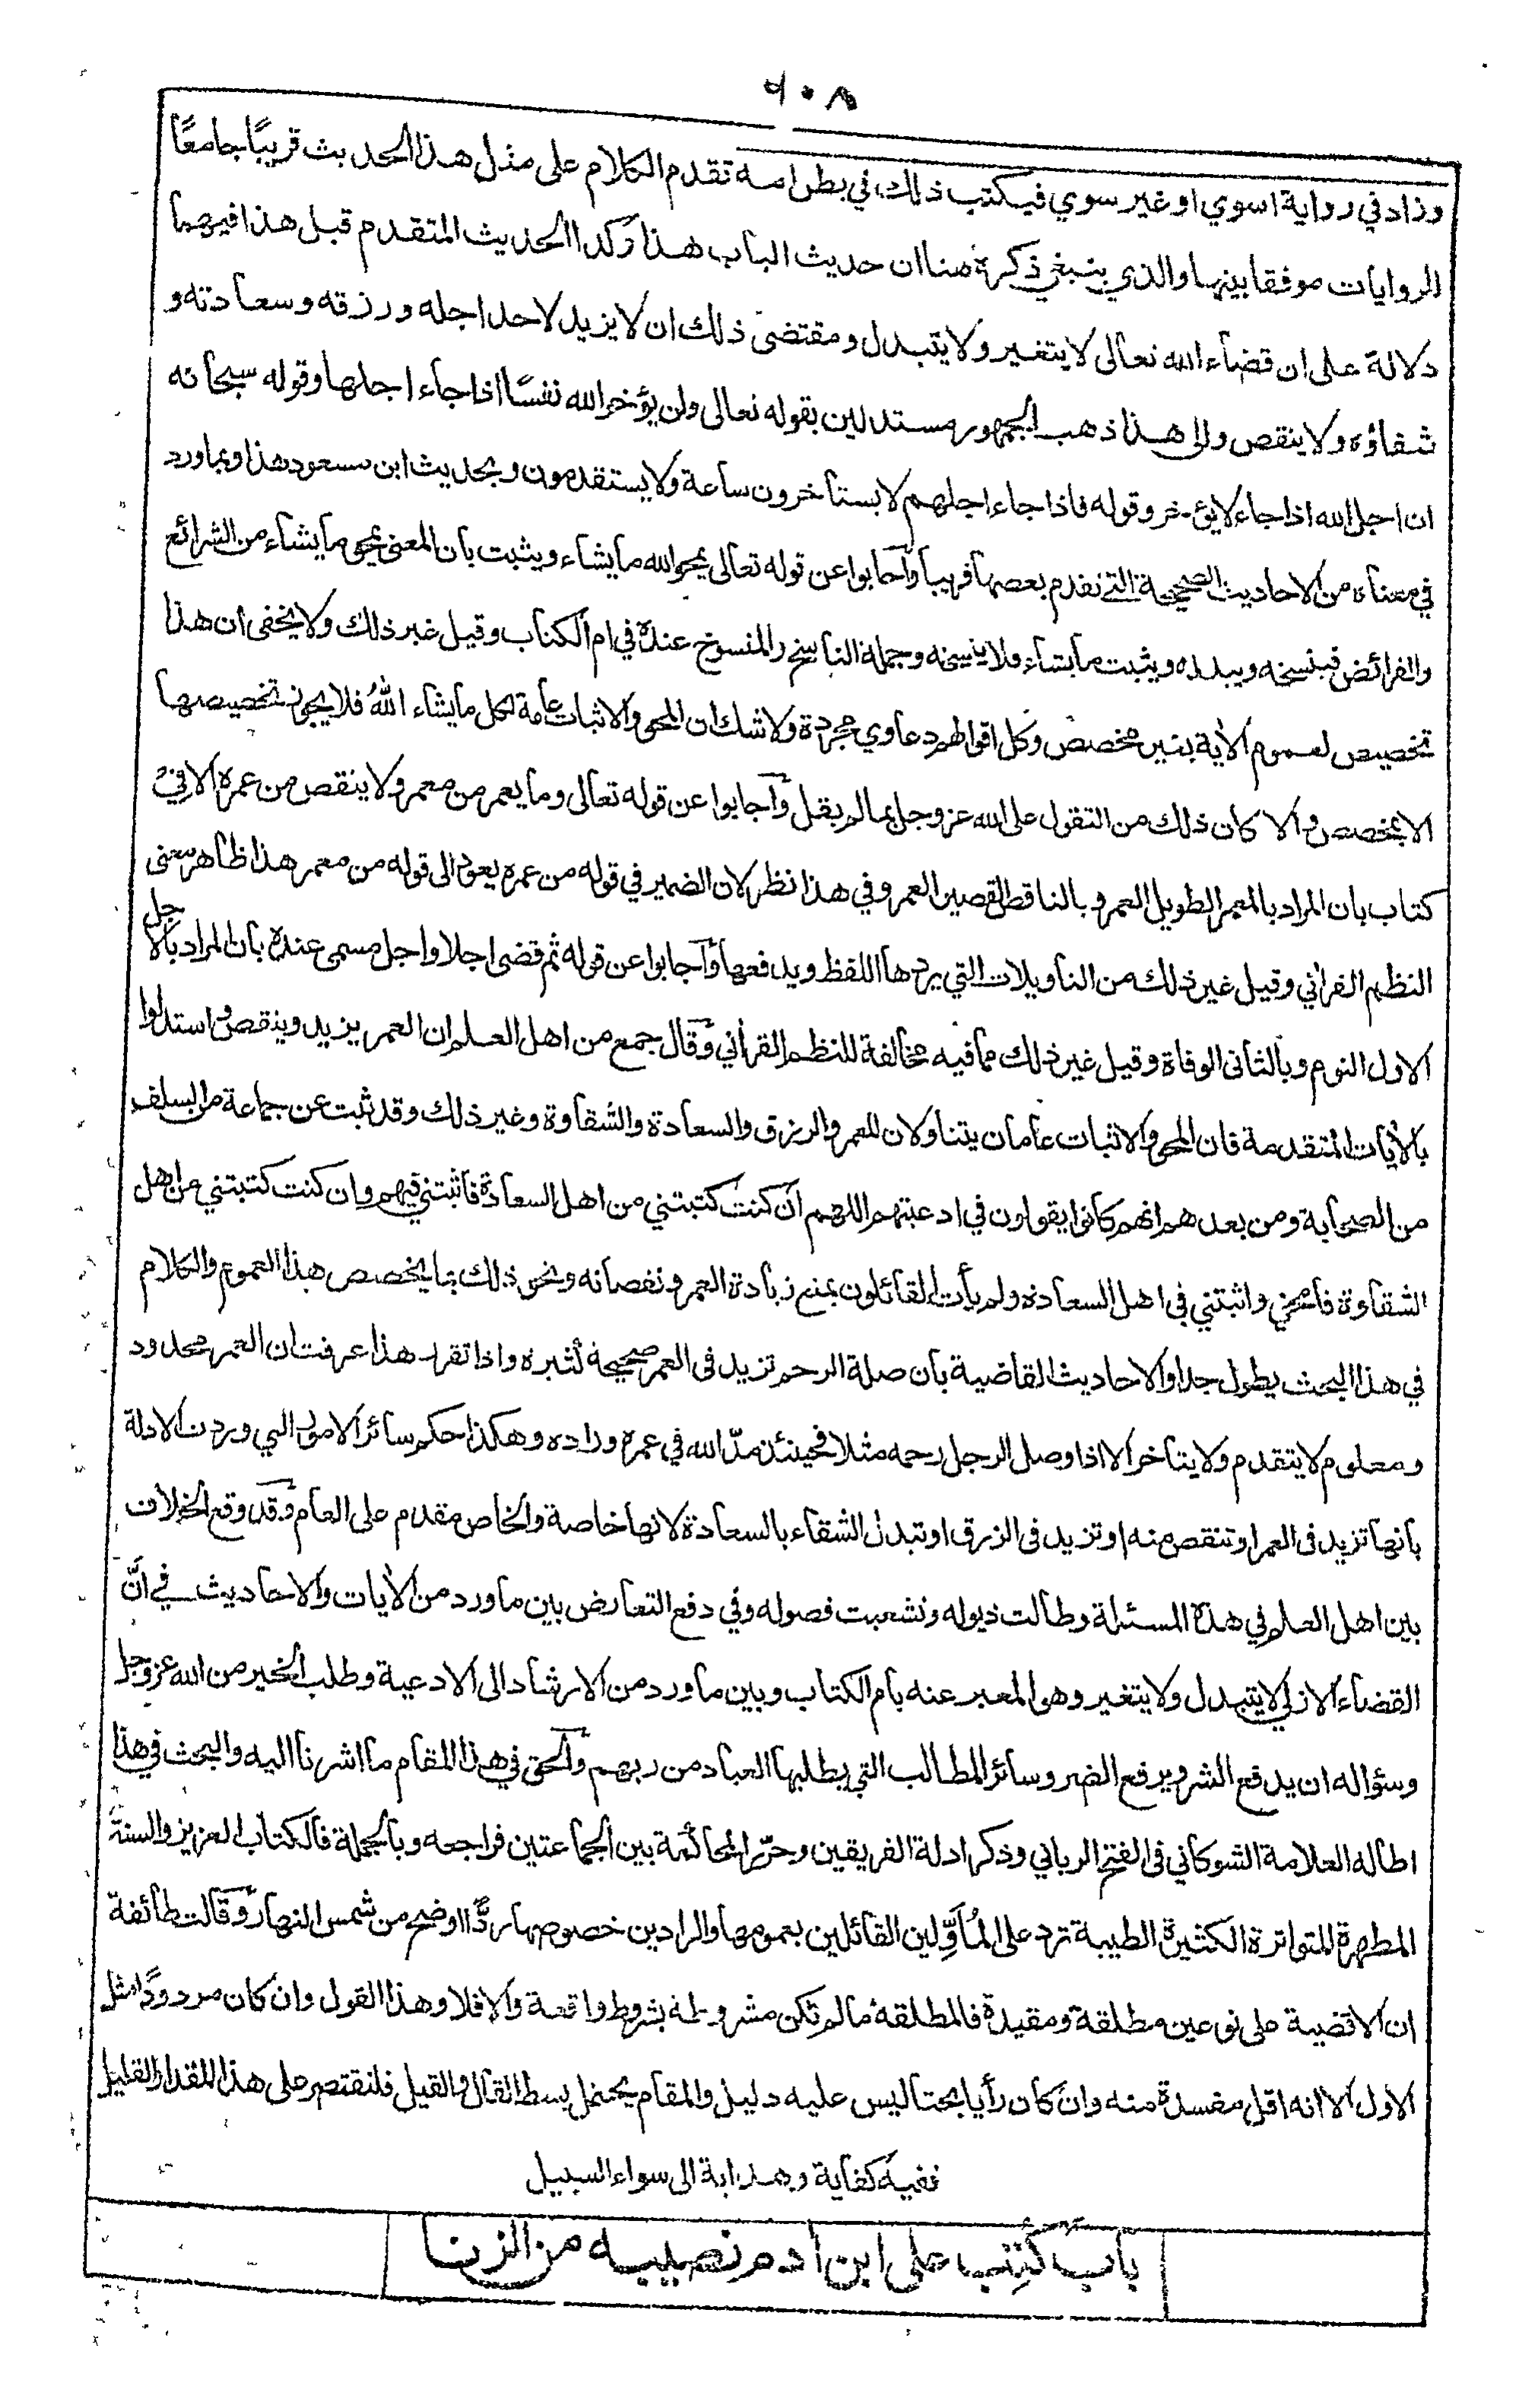 ٦٠٨
وزاد في رواية اسوي او غير سوي فيكتب ذلك في بطن امه تقدم الكلام على مثل هذا الحديث قريبًا جامعًا
الروايات موفقا بينها والذي ينبغي ذكره هنا ان حديث الباب هذا وكذا الحديث المتقدم قبل هذا فيهما
دلالة على ان قضاء الله تعالى لا يتغير ولا يتبدل ومقتضى ذلك ان لا يزيد لاحد اجله ورزقه وسعادته و
شقاؤه ولا ينقص والى هذا ذهب الجمهور مستدلين بقوله تعالى ولن يؤخر الله نفسًا اذا جاء اجلها وقوله سبحانه
ان اجل الله اذا جاء لا يؤخر وقوله فاذا جاء اجلهم لا يستأخرون ساعة ولا يستقدمون وبحديث ابن مسعود هذا وبما ورد
في معناه من الاحاديث الصحيحة التي تقدم بعضها قريبا وأجابوا عن قوله تعالى يمحو الله ما يشاء ويثبت بان المعنى يمحو ما يشاء من الشرائع
والفرائض فينسخه ويبدله ويثبت ما يشاء ولا ينسخه وجملة الناسخ والمنسوخ عنده في ام الكتاب وقيل غير ذلك ولا يخفى ان هذا
تخصيص لعموم الآية بغير مخصص وكل اقوالهم دعاوي مجردة ولا شك ان المحو والاثبات عامة لكل ما يشاء الله فلا يجوز تخصيصها
الا بمخصص والا كان ذلك من التقول على الله عز وجل بما لم يقل وأجابوا عن قوله تعالى وما يعمر من معمر ولا ينقص من عمره الا في
كتاب بان المراد بالمعمر الطويل العمر وبالناقص القصير العمر وفي هذا نظر لان الضمير في قوله من عمره يعود الى قوله من معمر هذا ظاهر معنى
النظم القرآني وقيل غير ذلك من التأويلات التي يردها اللفظ ويدفعها وأجابوا عن قوله ثم قضى اجلا واجل مسمى عنده بان المراد بالاجل
الاول النوم وبالثاني الوفاة وقيل غير ذلك مما فيه مخالفة للنظم القرآني وقال جمع من اهل العلم ان العمر يزيد وينقص واستدلوا
بالآيات المتقدمة فان المحو والاثبات عامان يتناولان للعمر والرزق والسعادة والشقاوة وغير ذلك وقد ثبت عن جماعة من السلف
من الصحابة ومن بعدهم انهم كانوا يقولون في ادعيتهم اللهم ان كنت كتبتني من اهل السعادة فأثبتني فيهم وان كنت كتبتني من اهل
الشقاوة فامحني واثبتني في اهل السعادة ولم يأت القائلون بمنع زيادة العمر ونقصانه ونحو ذلك بما يخصص هذا العموم والكلام
في هذا البحث يطول جدا والاحاديث القاضية بان صلة الرحم تزيد في العمر صحيحة كثيرة واذا تقرر هذا عرفت ان العمر محدود
ومعلوم لا يتقدم ولا يتأخر الا اذا وصل الرجل رحمه مثلا فحينئذ مدّ الله في عمره وزاده وهكذا حكم سائر الامور التي وردت الادلة
بانها تزيد في العمر او تنقص منه او تزيد في الرزق او تبدل الشقاء بالسعادة لانها خاصة والخاص مقدم على العام وقد وقع الخلاف
بين اهل العلم في هذه المسئلة وطالت ذيوله وتشعبت فصوله وفي دفع التعارض بين ما ورد من الآيات والاحاديث في انّ
القضاء الازلي لا يتبدل ولا يتغير وهو المعبر عنه بام الكتاب وبين ما ورد من الارشاد الى الادعية وطلب الخير من الله عز وجل
وسؤاله ان يدفع الشر ويرفع الضر وسائر المطالب التي يطلبها العباد من ربهم والحق في هذا المقام ما اشرنا اليه والبحث في هذا
اطاله العلامة الشوكاني في الفتح الرباني وذكر ادلة الفريقين وحرّر المحاكمة بين الجماعتين فراجعه وبالجملة فالكتاب العزيز والسنة
المطهرة المتواترة الكثيرة الطيبة ترد على المُأَوِّلين القائلين بعمومها والرادين خصوصها ردًّا اوضح من شمس النهار وقالت طائفة
ان الاقضية على نوعين مطلقة ومقيدة فالمطلقة ما لم تكن مشروطة بشروط واقعة والا فلا وهذا القول وان كان مردودًا مثل
الاول الا انه اقل مفسدة منه وان كان رأيا بحتا ليس عليه دليل والمقام يحتمل بسط القال والقيل فلنقتصر على هذا المقدار القليل
ففيه كفاية وهداية الى سواء السبيل
باب كُتِب على ابن آدم نصيبه من الزنا